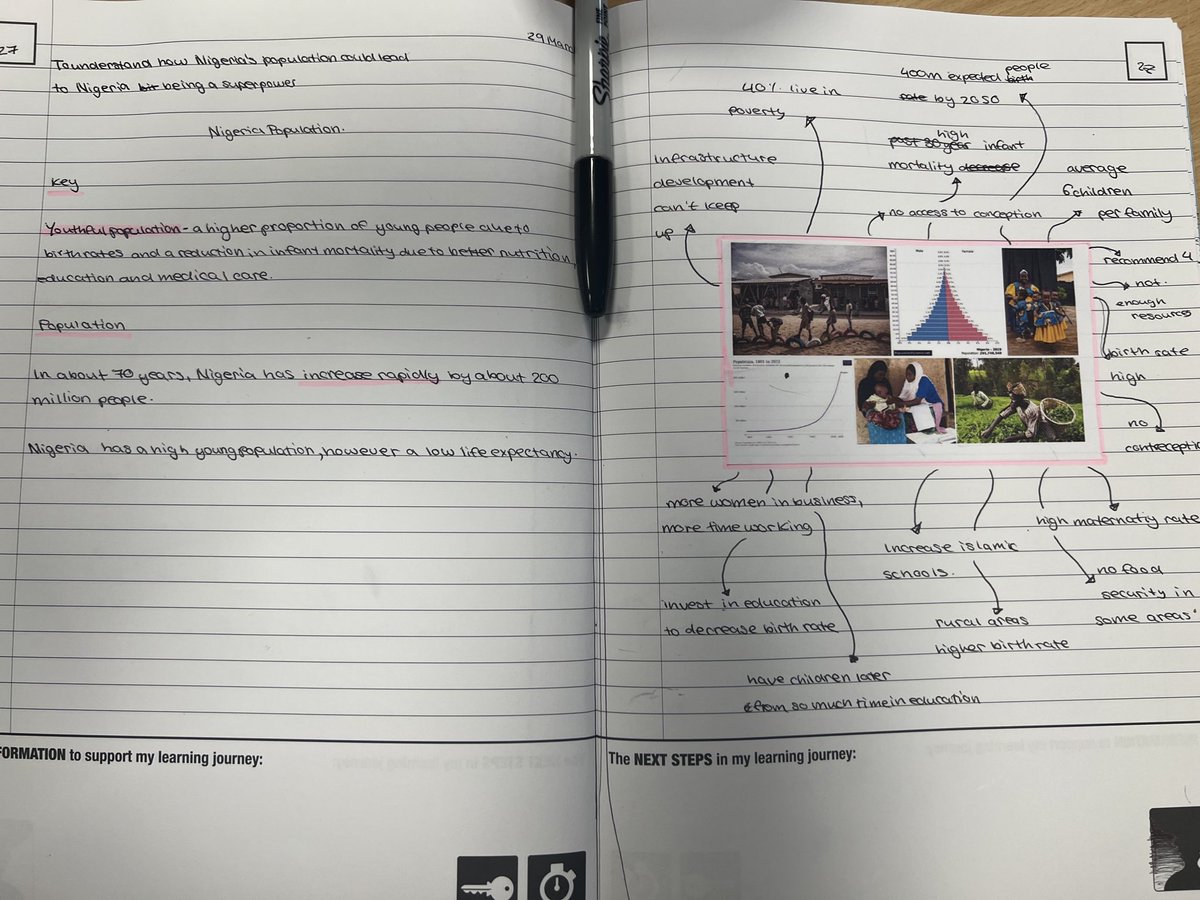 27
29 Marc
To understand how Nigeria's population could lead
to Nigeria bit being a superpower
Nigeria Population.
Key
Youthful population - a higher proportion of young people due to
birthrates and a reduction in infant mortality due to better nutrition,
education and medical care.
Population
In about 70 years, Nigeria has increase rapidly by about 200
million people.
Nigeria has a high young population, however a low life expectancy.
FORMATION to support my learning journey:
Sharpie
FINE POINT
40% live in
poverty
infrastructure
development
can't keep
up
400m expected people birth
rate by 2050
high
past 30 year infant
mortality decrease
no access to conception
average
6 children
per family
recommend 4
not
enough
resources
birth rate
high
no
contracepti
Male Female
Nigeria - 2019
more women in business,
more time working
invest in education
to decrease birth rate
have children later
from so much time in education
increase islamic
schools.
rural areas
higher birthrate
high maternatiy rate
no food
security in
some areas.
The NEXT STEPS in my learning journey: